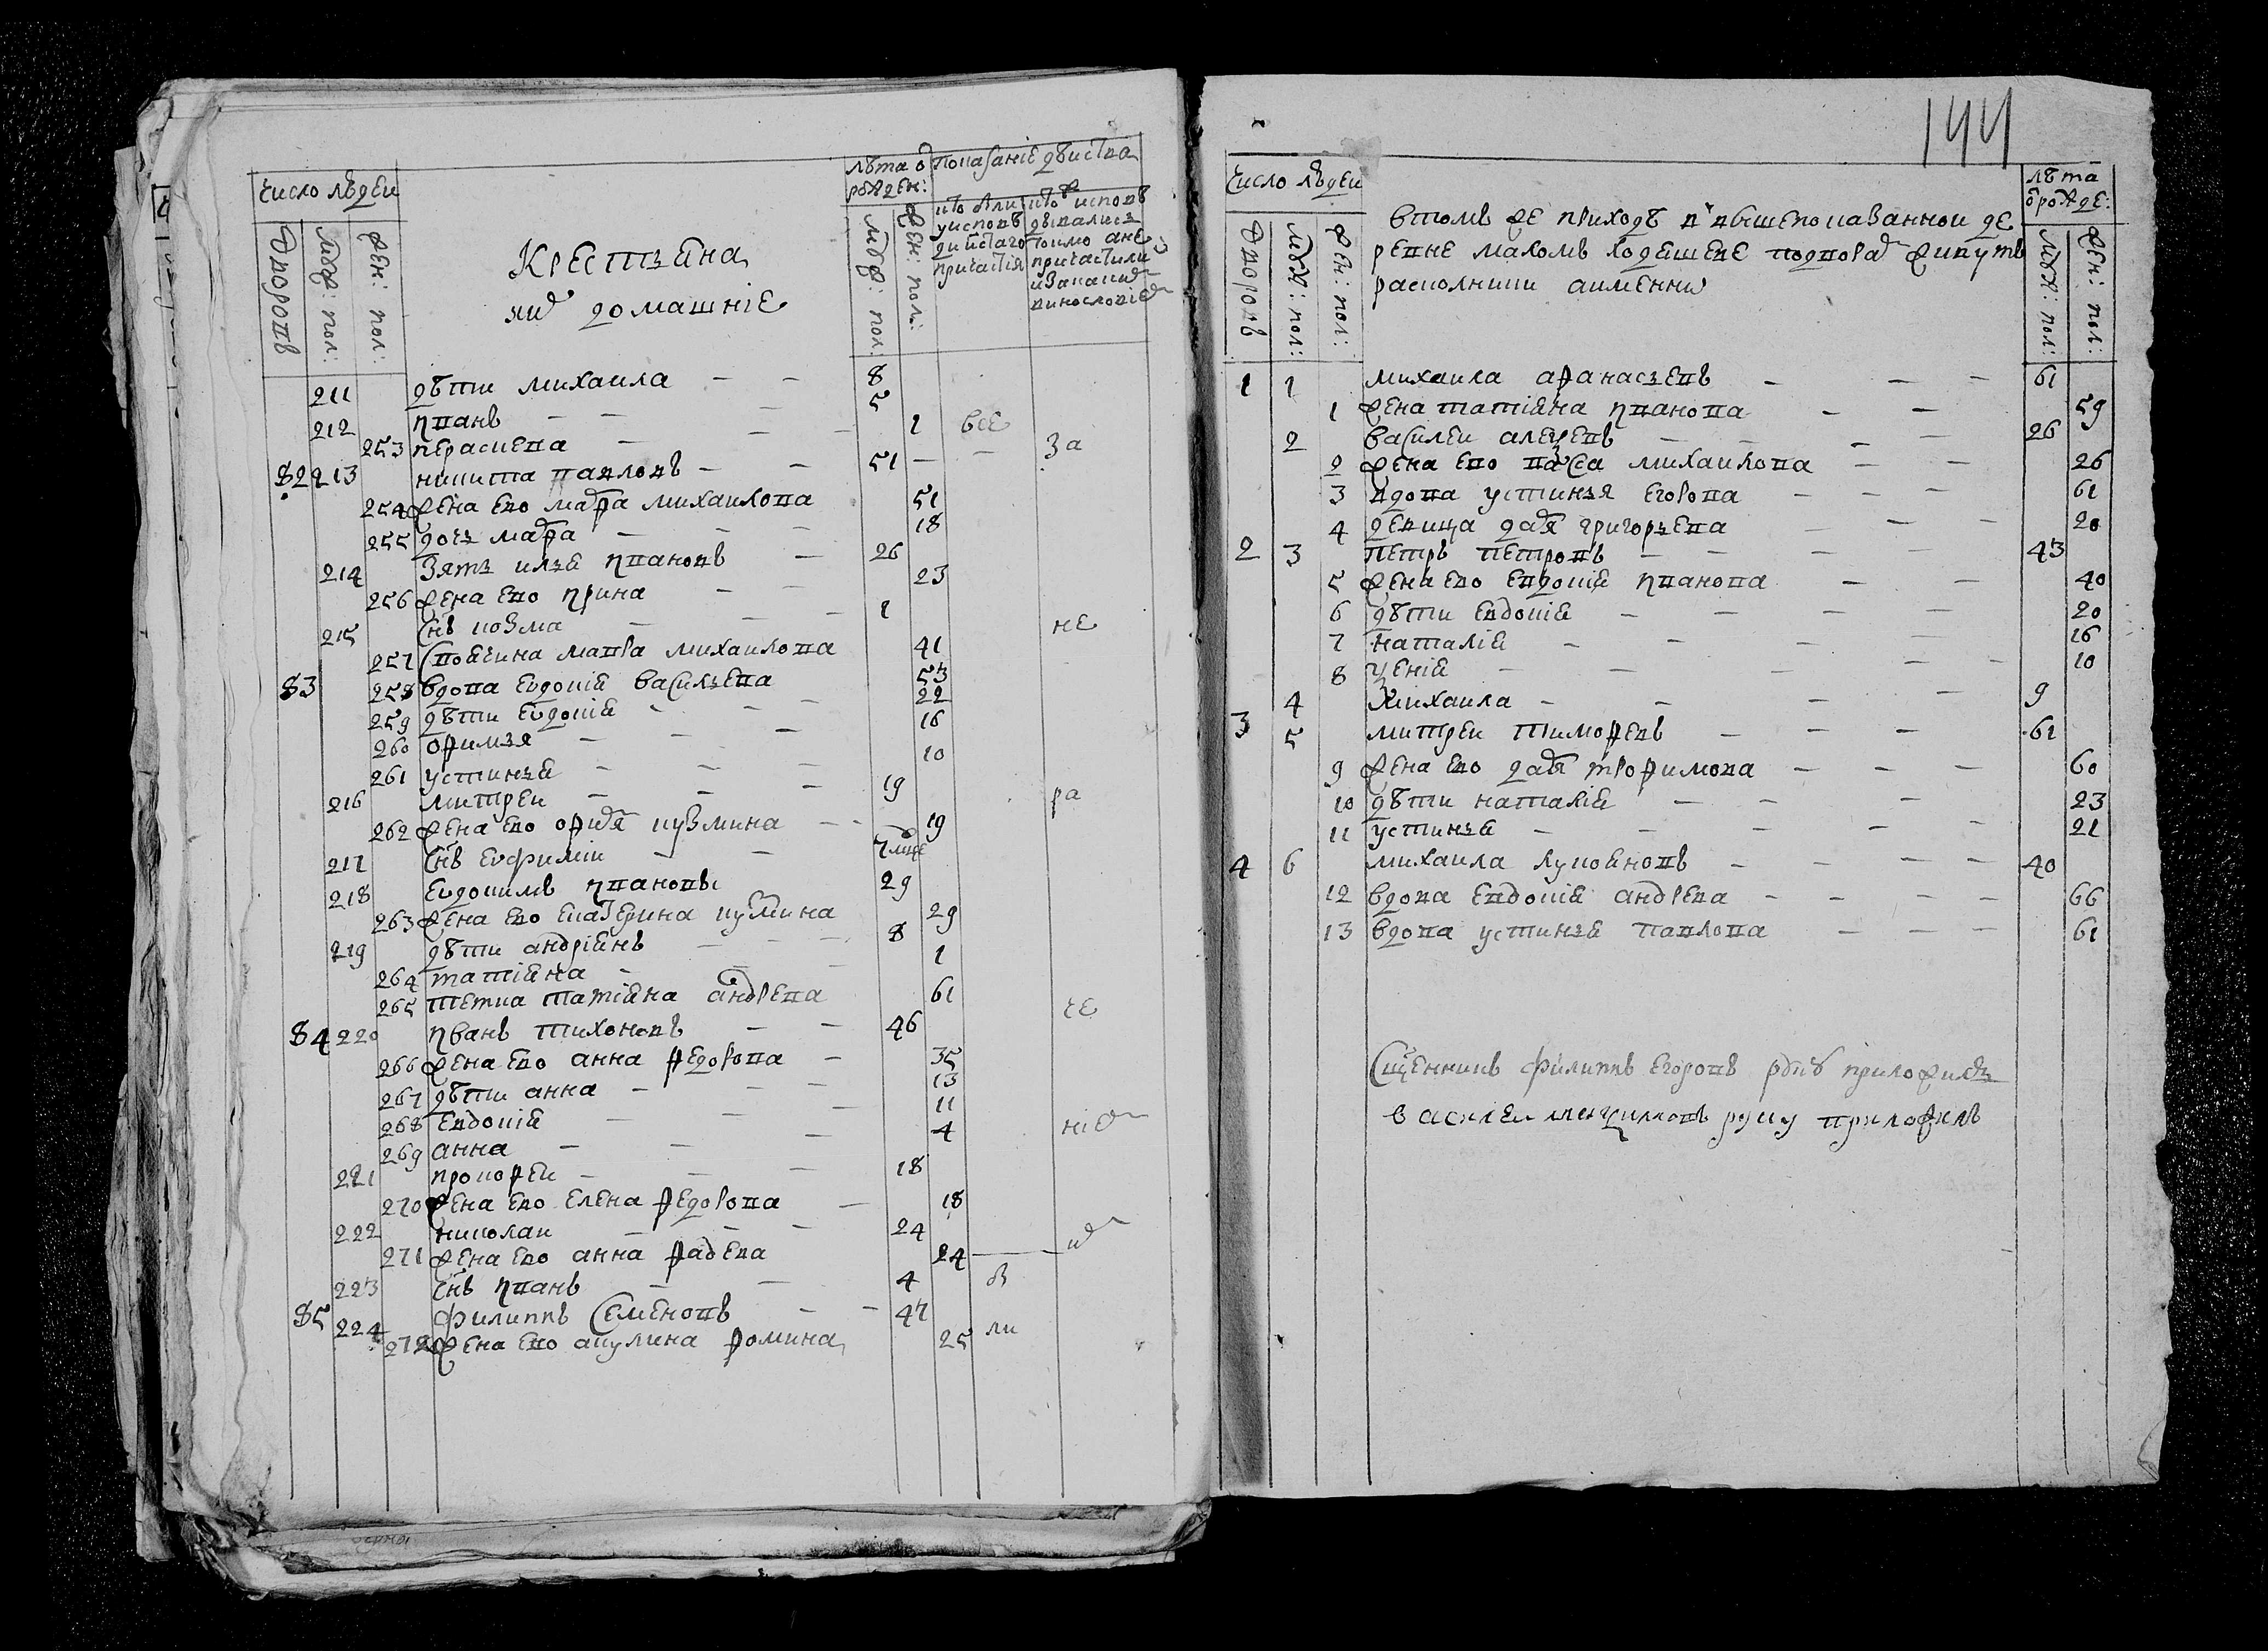 число людеи
Дворовъ
муж: пол:
жен: пол:
Крестьяна
их домашніе
лѣта от рожден:
муж: пол:
жен: пол:
показаніе дѣиства
кто были у исповѣди и стаго причастія
кто исповѣдывались токмо а не причастили и за каким винословіем
211 дѣти михаила 8
212 иванъ 5
253 1 все
82 213 никита павловъ 51 за
254 жена ево марфа михаилова 51
255 дочь марфа 18
214 зять илья ивановъ 26
256 жена ево ирина 23
215 снъ козма 1 не
257 своячина мавра михаилова 41
83 258 вдова евдокия васильева 53
259 дѣти евдокия 22
260 офимья 16
261 устинья 10
216 митреи 19 ра
262 жена ево кузмина 19
217 снъ евфимии
218 евдокимъ ивановъ 29
263 жена ево екатерина кузмина 29
219 дѣти андріянъ 8
264 татіяна 1
265 тетка татіяна андрева 61
84 220 иванъ тихоновъ 46 че
266 жена ево анна федорова 35
267 дѣти анна 13
268 евдокия 11 нія
269 анна 4
221 прокофеи 18
270 жена ево елена федорова 18
222 николаи 24
271 жена ево анна фадева 24
223 снъ иванъ 4
85 224 филиппъ семеновъ 47
272 жена ево акулина фомина 25 ли
144
число людеи
Дворовъ
муж: пол:
жен: пол:
втомъ же приходѣ в вышепоказаннои де
ревне маломъ живутъ
расколники аименно
лѣта от рожде:
муж: пол:
жен: пол:
1 1 михаила афанасьевъ 61
1 жена татіяна иванова 59
2 василеи алексевъ 26
2 жена ево михаилова 26
3 вдова устинья егорова 61
4 девица дарья григорьева 20
2 3 петръ петровъ 43
5 жена ево евдокия иванова 40
6 дѣти евдокия 20
7 наталія 16
8 ксенія 10
4 михаила 9
3 5 митреи тимофевъ 61
9 жена ево дарья трофимова 60
10 дѣти наталія 23
11 устинья 21
4 6 михаила лукояновъ 40
12 вдова евдокия андрева 66
13 вдова устинья павлова 61
Сщенникъ филиппъ егоровъ руку приложилъ
васклеи руку приложилъ